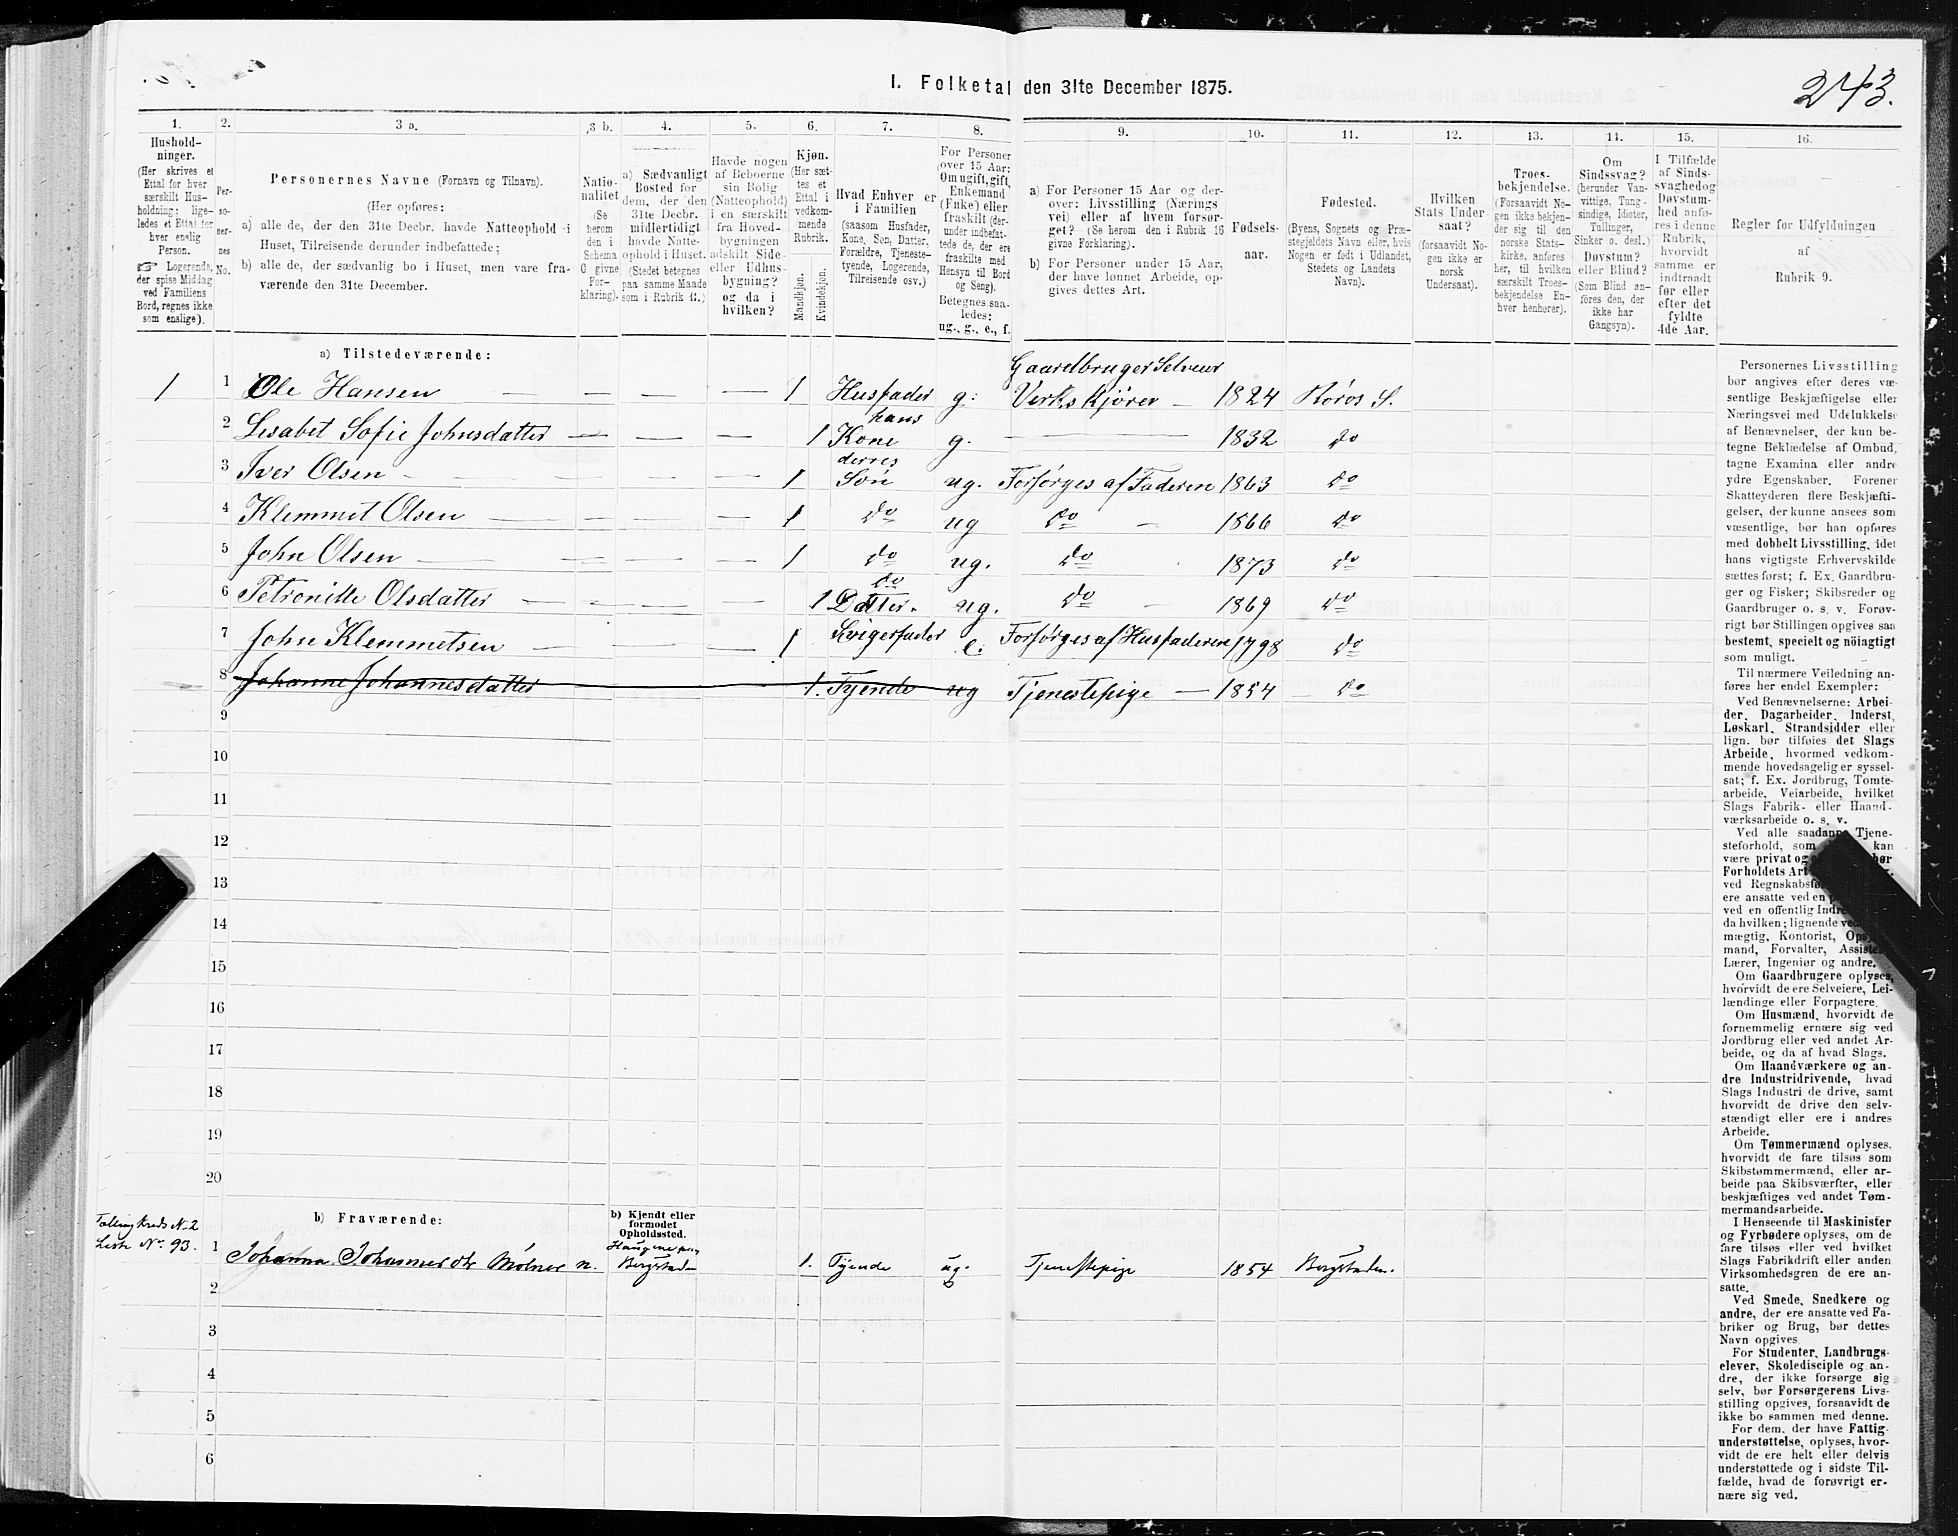 I. Folketal den 31te December 1875.
243.
1.
2.
3 a.
3 b.
4.
5.
6.
7.
8.
9.
10.
11.
12.
13.
14.
15.
16.
Hushold-
ninger.
(Her skrives et
Ettal for hver
særskilt Hus-
holdning; lige-
ledes et Ettal for
hver enslig
Person.
☞ Logerende,
der spise Middag
ved Familiens
Bord, regnes ikke
som enslige).
Per-
so-
ner-
nes
No.
Personernes Navne (Fornavn og Tilnavn).
(Her opføres:
a) alle de, der den 31te Decbr. havde Natteophold i
Huset, Tilreisende derunder indbefattede;
b) alle de, der sædvanlig bo i Huset, men vare fra-
værende den 31te December.
Natio-
nalitet
(Se
herom
den i
Schema
G givne
For-
klaring).
a) Sædvanligt
Bosted for
dem, der den
31te Decbr.
midlertidigt
havde Natte-
ophold i Huset.
(Stedet betegnes
paa samme Maade
som i Rubrik 11.)
Havde nogen
af Beboerne
sin Bolig
(Natteophold)
i en særskilt
fra Hoved-
bygningen
adskilt Side-
eller Udhus-
bygning?
og da i
hvilken?
Kjøn.
(Her sæt-
tes et
Ettal i
vedkom-
mende
Rubrik.
Mandkjøn.
Kvindekjøn.
Hvad Enhver er
i Familien
(saasom Husfader,
Kone, Søn, Datter,
Forældre, Tjeneste-
tyende, Logerende,
Tilreisende osv.)
For Personer
over 15 Aar;
Om ugift, gift,
Enkemand
(Enke) eller
fraskilt (der-
under indbefat-
tede de, der ere
fraskilte med
Hensyn til Bord
og Seng).
Betegnes saa-
ledes:
ug., g., e., f.
a) For Personer 15 Aar og der-
over: Livsstilling (Nærings
vei) eller af hvem forsør-
get? (Se herom den i Rubrik 16
givne Forklaring).
b) For Personer under 15 Aar,
der have lønnet Arbeide, op-
gives dettes Art.
Fødsels-
aar.
Fødested.
(Byens, Sognets og Præ-
stegjeldets Navn eller, hvis
Nogen er født i Udlandet,
Stedets og Landets
Navn).
Hvilken
Stats Under-
saat?
(forsaavidt No-
gen ikke er
norsk
Undersaat).
Troes-
bekjendelse.
(Forsaavidt No-
gen ikke bekjen-
der sig til den
norske Stats-
kirke, anføres
her, til hvilken
særskilt Troes-
bekjendelse En-
hver henhører).
Om
Sindssvag?
(herunder Van-
vittige, Tung-
sindige, Idioter,
Tullinger,
Sinker o. desl.)
Døvstum?
eller Blind?
(Som Blind an-
føres den, der
ikke har
Gangsyn).
I Tilfælde
af Sinds-
svaghedog
Døvstum-
hed anfø-
res i denne
Rubrik,
hvorvidt
samme er
indtraadt
før eller
efter det
fyldte
4de Aar.
Regler for Udfyldningen
af
Rubrik 9.
a) Tilstedeværende:
Gaardbruger Selveier
1 1 Ole Hansen — — — 1 Husfader g: Verkskjører — 1824 Røros S.
hans
2 Lisabet Sofie Johnsdatter — — — 1 Kone g. — 1832 do
derres
3 Iver Olsen — — — 1 Søn ug. Forsørges af Faderen 1863 do
4 Klemmet Olsen — — — 1 do ug do — 1866 do
5 John Olsen — — — 1 do ug. do 1873 do
do
6 Petronille Olsdatter — — — 1 Datter. ug. do — 1869 do
7 John Klemmetsen — — — 1 Svigerfader e. Forsørges af Husfaderen 1798 do
8 Johanne Johannesdatter 1. Tyende ug Tjenestepige — 1854 — do
9
10
11
12
13
14
15
16
17
18
19
20
b) Fraværende:
b) Kjendt eller
formodet
Opholdssted.
Tællingkreds N. 2
Liste No. 93.
1 Johanna Johannesdtr Mølner n. Bergstad 1. Tyende ug. Tjenestepige 1854 Bergstaden.
2
3
4
5
6
Personernes Livsstilling
bør angives efter deres væ-
sentlige Beskjæftigelse eller
Næringsvei med Udelukkelse
af Benævnelser, der kun be-
tegne Beklædelse af Ombud,
tagne Examina eller andre
ydre Egenskaber. Forener
Skatteyderen flere Beskjæfti-
gelser, der kunne ansees som
væsentlige, bør han opføres
med dobbelt Livsstilling, idet
hans vigtigste Erhvervskilde
sættes først; f. Ex. Gaardbru-
ger og Fisker; Skibsreder og
Gaardbruger o. s. v. Forøv-
rigt bør Stillingen opgives saa
bestemt, specielt og nöiagtigt
som muligt.
Til nærmere Veiledning an-
føres her endel Exempler:
Ved Benævnelserne: Arbei-
der, Dagarbeider, Inderst,
Løskarl, Strandsidder eller
lign. bør tilføies det Slags
Arbeide, hvormed vedkom-
mende hovedsagelig er syssel-
sat; f. Ex. Jordbrug, Tomte-
arbeide, Veiarbeide, hvilket
Slags Fabrik- eller Haand-
værksarbeide o. s. v.
Ved alle saadanne Tjene-
steforhold, som kan
være privat og bør
Forholdets Art
ved Regnskabsfø
ere ansatte ved en
ved en offentlig Indre
da hvilken; lignende ved
mægtig, Kontorist, Opsyns-
mand, Forvalter, Assistent,
Lærer, Ingeniør og andre.
Om Gaardbrugere oplyses,
hvorvidt de ere Selveiere, Lei-
lændinge eller Forpagtere.
Om Husmænd, hvorvidt de
fornemmelig ernære sig ved
Jordbrug eller ved andet Ar-
beide, og da af hvad Slags.
Om Haandværkere og an-
dre Industridrivende, hvad
Slags Industri de drive, samt
hvorvidt de drive den selv-
stændigt eller ere i andres
Arbeide.
Om Tømmermænd oplyses,
hvorvidt de fare tilsøs som
Skibstømmermænd, eller ar-
beide paa Skibsværfter, eller
beskjæftiges ved andet Tøm-
mermandsarbeide.
I Henseende til Maskinister
og Fyrbødere oplyses, om de
fare tilsøs eller ved hvilket
Slags Fabrikdrift eller anden
Virksomhedsgren de ere an-
satte.
Ved Smede, Snedkere og
andre, der ere ansatte ved Fa-
briker og Brug, bør dettes
Navn opgives.
For Studenter, Landbrugs-
elever, Skoledisciple og an-
dre, der ikke forsørge sig
selv, bør Forsørgerens Livs-
stilling opgives, forsaavidt de
ikke bo sammen med denne.
For dem, der have Fattig-
understøttelse, oplyses, hvor-
vidt de ere helt eller delvis
understøttede og i sidste Til-
fælde, hvad de forøvrigt er-
nære sig ved.